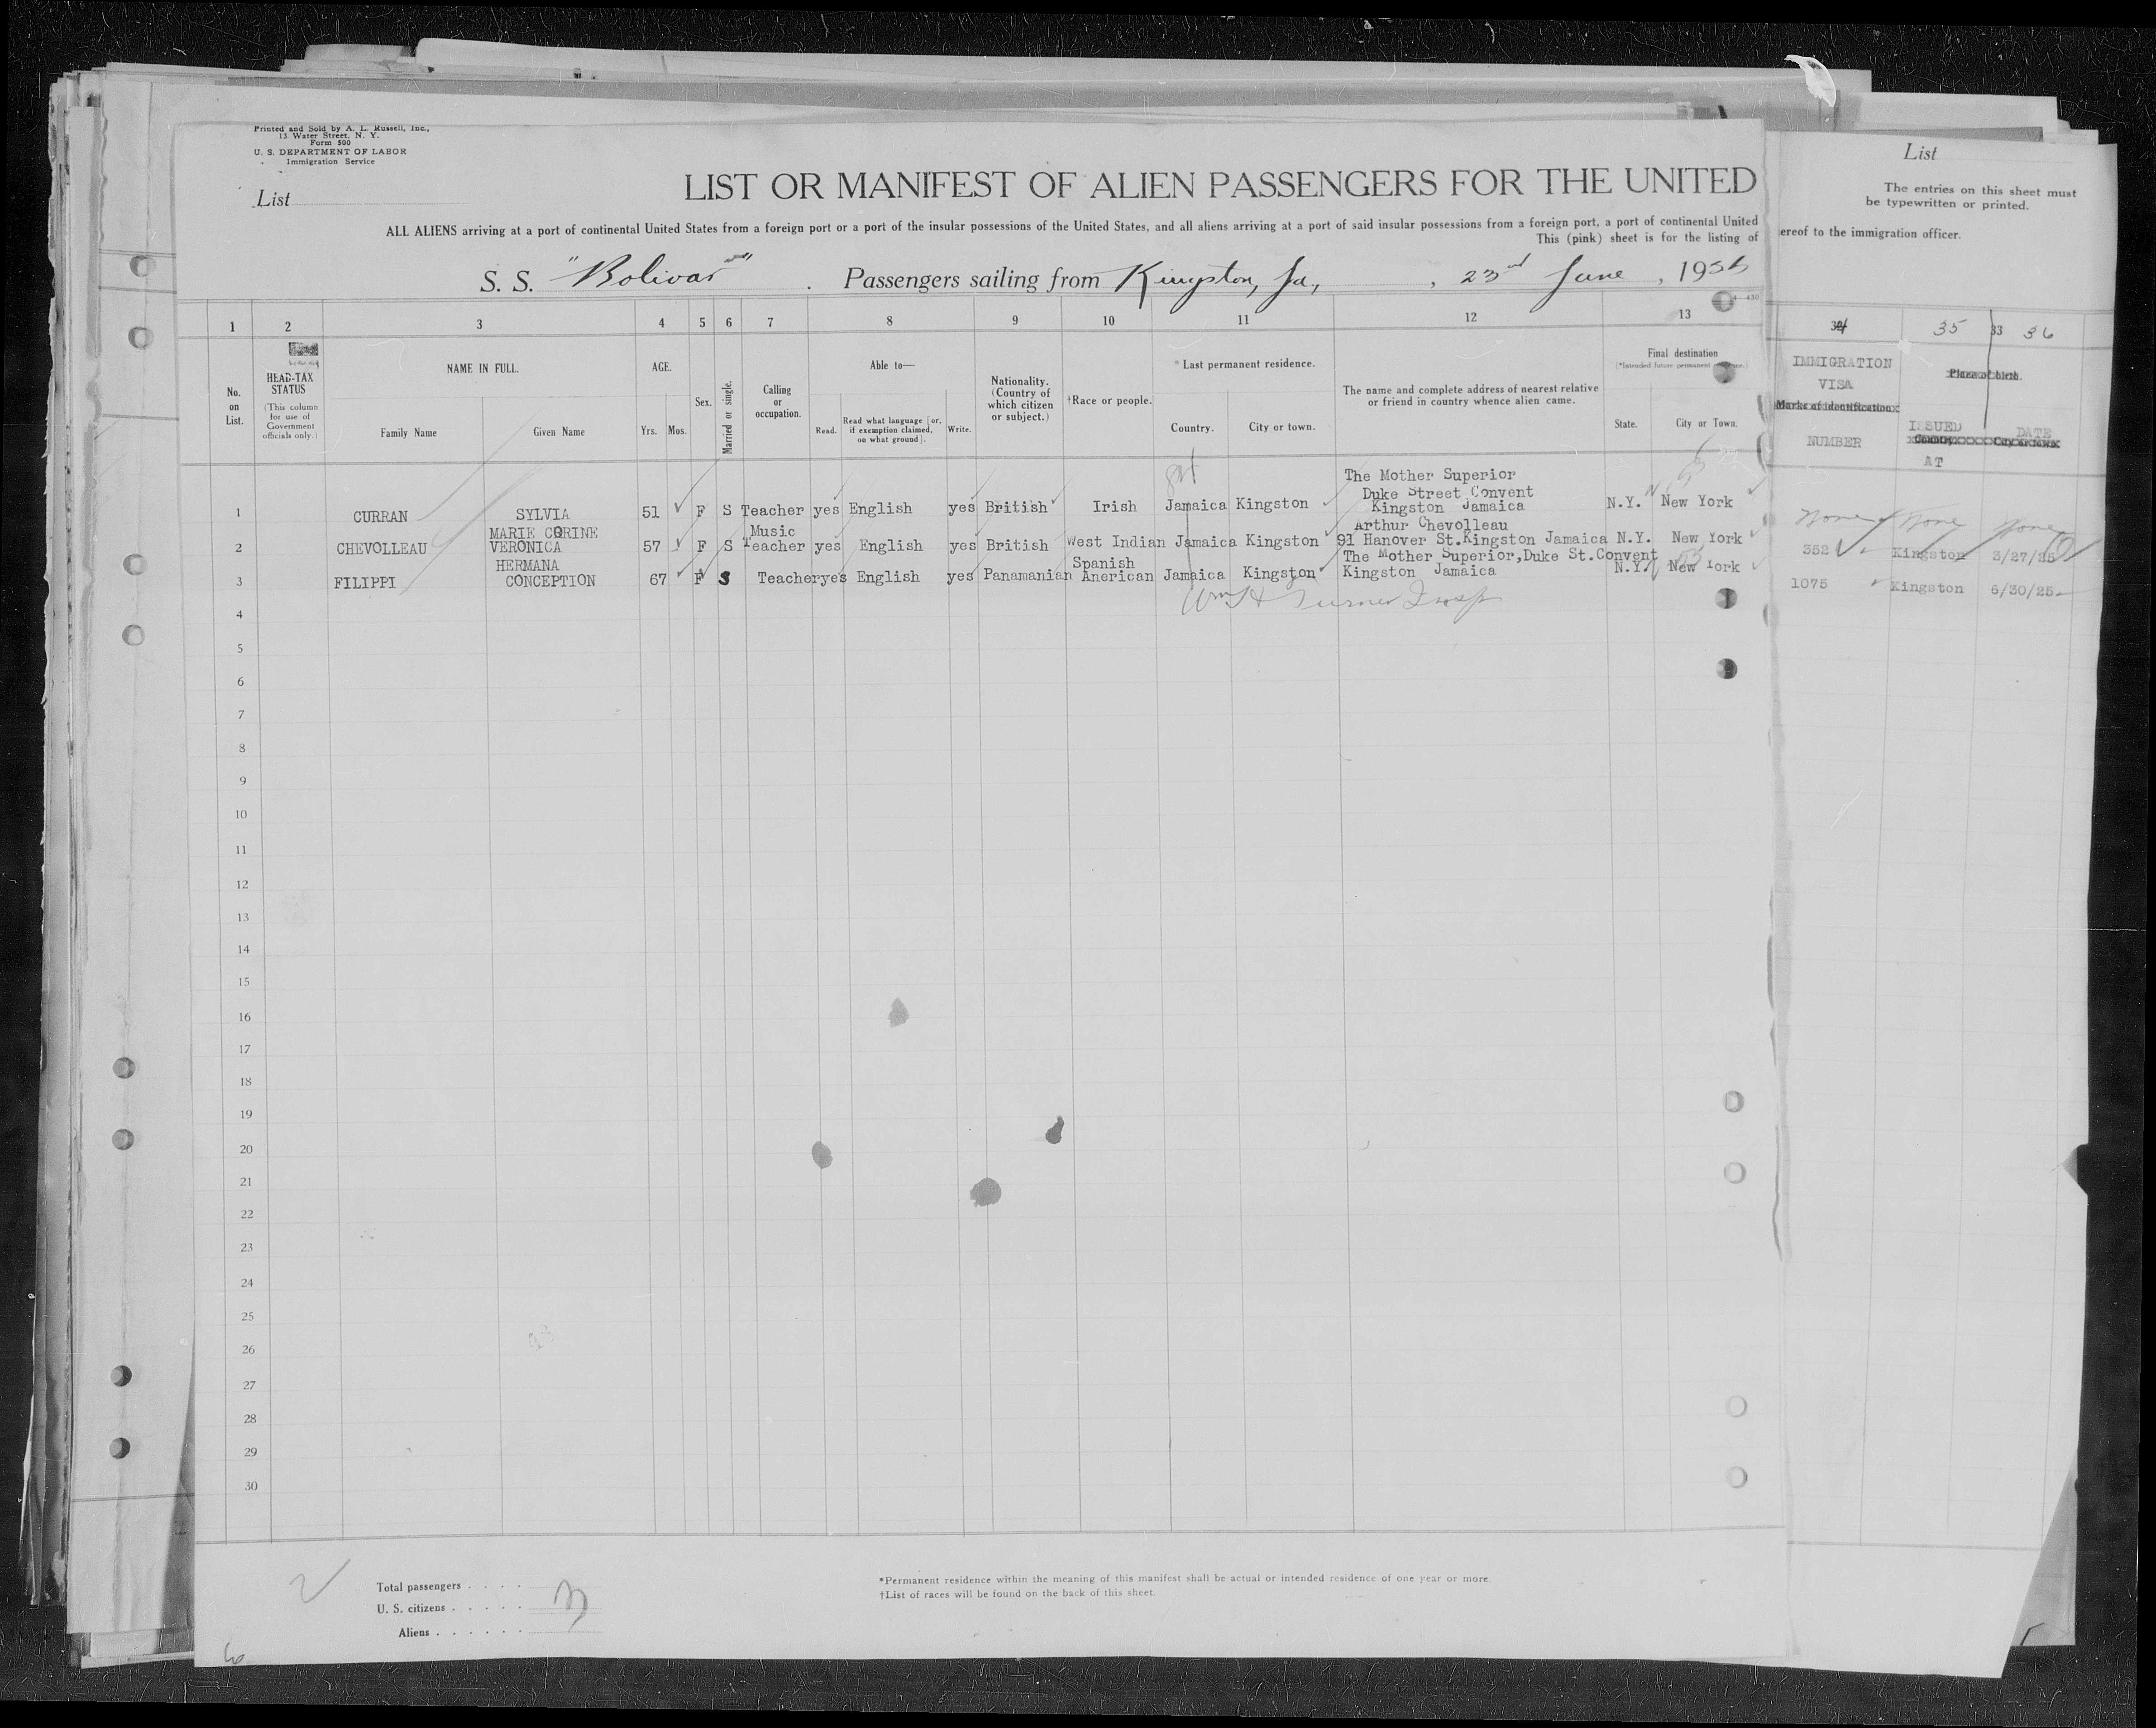 Printed and Sold by A. L. Russell, Inc.,
13 Water Street, N. Y.
Form 500
U. S. DEPARTMENT OF LABOR
Immigration Service
List
LIST OR MANIFEST OF ALIEN PASSENGERS FOR THE UNITED
ALL ALIENS arriving at a port of continental United States from a foreign port or a port of the insular possessions of the United States, and all aliens arriving at a port of said insular possessions from a foreign port, a port of continental United
This (pink) sheet is for the listing of
S. S. "Bolivar". Passengers sailing from Kingston, Ja., , 23rd June , 19
List
The entries on this sheet must
be typewritten or printed.
ereof to the immigration officer.
1 2 3 4 5 6 7 8 9 10 11 12 13
34 35 33 36
No. on List.
HEAD-TAX STATUS
(This column for use of Government officials only.)
NAME IN FULL.
Family Name Given Name
AGE.
Yrs. Mos.
Sex.
Married or single.
Calling or occupation.
Able to—
Read. Read what language [or, if exemption claimed, on what ground]. Write.
Nationality. (Country of which citizen or subject.)
†Race or people.
*Last permanent residence.
Country. City or town.
The name and complete address of nearest relative or friend in country whence alien came.
Final destination
(*Intended future permanent
State. City or Town.
IMMIGRATION
VISA
Marks of identification
NUMBER
Place of birth.
ISSUED
AT
DATE
1 CURRAN SYLVIA 51 F S Teacher yes English yes British Irish Jamaica Kingston The Mother Superior Duke Street Convent Kingston Jamaica N.Y. New York None None None
2 CHEVOLLEAU MARIE CORINE VERONICA 57 F S Music Teacher yes English yes British West Indian Jamaica Kingston Arthur Chevolleau 91 Hanover St.Kingston Jamaica N.Y. New York 352 Kingston 3/27/25
3 FILIPPI HERMANA CONCEPTION 67 F S Teacher yes English yes Panamanian Spanish American Jamaica Kingston The Mother Superior,Duke St.Convent Kingston Jamaica N.Y. New York 1075 Kingston 6/30/25
Wm H Turner Insp
4
5
6
7
8
9
10
11
12
13
14
15
16
17
18
19
20
21
22
23
24
25
26
27
28
29
30
Total passengers . . . .
U. S. citizens . . . . . 3
Aliens . . . . . .
*Permanent residence within the meaning of this manifest shall be actual or intended residence of one year or more.
†List of races will be found on the back of this sheet.